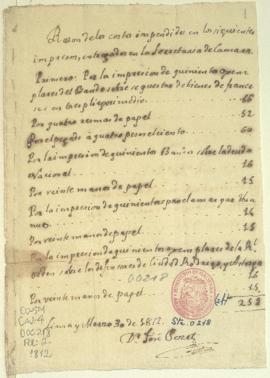 Razon de lo costo impendido en los siguientes
impresos, entregados en la Secretaria de Camara
Primero: Por la imprecion de quinientos exem-
plares del Bando sobre sequestro de bienes de france-
ses en tres pliegos y medio. 66
Por quatro resmas de papel 52
Por el pegado à quatro pesos el ciento 60
Por la imprecion de quinientos Bandos sobre la deuda
Nacional 16
Por veinte manos de papel 15
Por la imprecion de quinientas proclamas
16
Por veinte manos de papel 15
Por la imprecion de quinientos exemplares de la Rl
orden sobre los defensores de Ciudad Rodrigo, y Astorga
16
Por veinte manos de papel 15
00218
Lima y Marzo 30 de 1812.
Dn José Perez